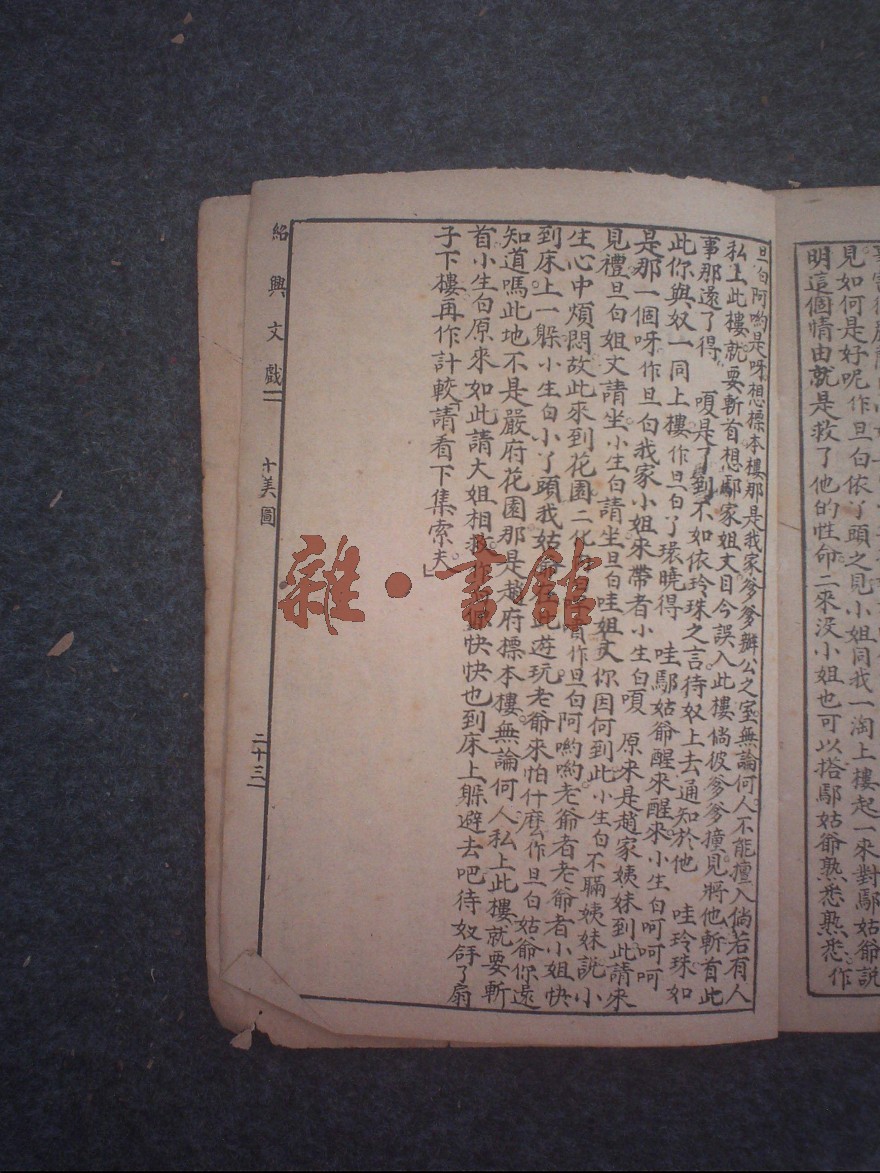 事
見如何是好呢作旦白依了頭之見小姐同我一淘上樓起一來對鄢姑爺說
明這個情由就是救了他的性命二來没小姐也可以搭鄢姑爺熟悉熟悉作
旦白阿喲是呀想標本樓那是我家爹爹辦公之室無論何人不能擅入倘若有人
私上此樓就要斬首想鄢家姐丈目今誤入此樓倘彼爹爹撞見將他斬首此
事那還了得 嗄是了到不如依玲珠之言待奴上去通知於他 哇玲珠如
此你與奴一同上樓作旦白了環曉得 哇鄢姑爺醒來醒來小生白呵呵呵
是那一個呀作旦白我家小姐來帶者小生白嗄 原来是趙家姨妹到此請來
見禮旦白姐丈請坐小生白請坐旦白哇姐丈你因何到此小生白不瞞姨妹說小
生心中煩悶故此來到花園二化作旦白阿喲喲老爺者老爺者小姐快
到床上一躲小生白小了頭我姑爺此遊玩老爺來怕什麽作旦白姑爺你還
知道嗎此地不是嚴府花園那是趙府標本樓無論何人私上此樓就要斬
首小生白原來如此請大姐相救作快快也到床上躲避去吧待奴仔了扇
子下樓再作計較「請看下集索夫」
紹興文戲 十美圖 二十三
雜·書館